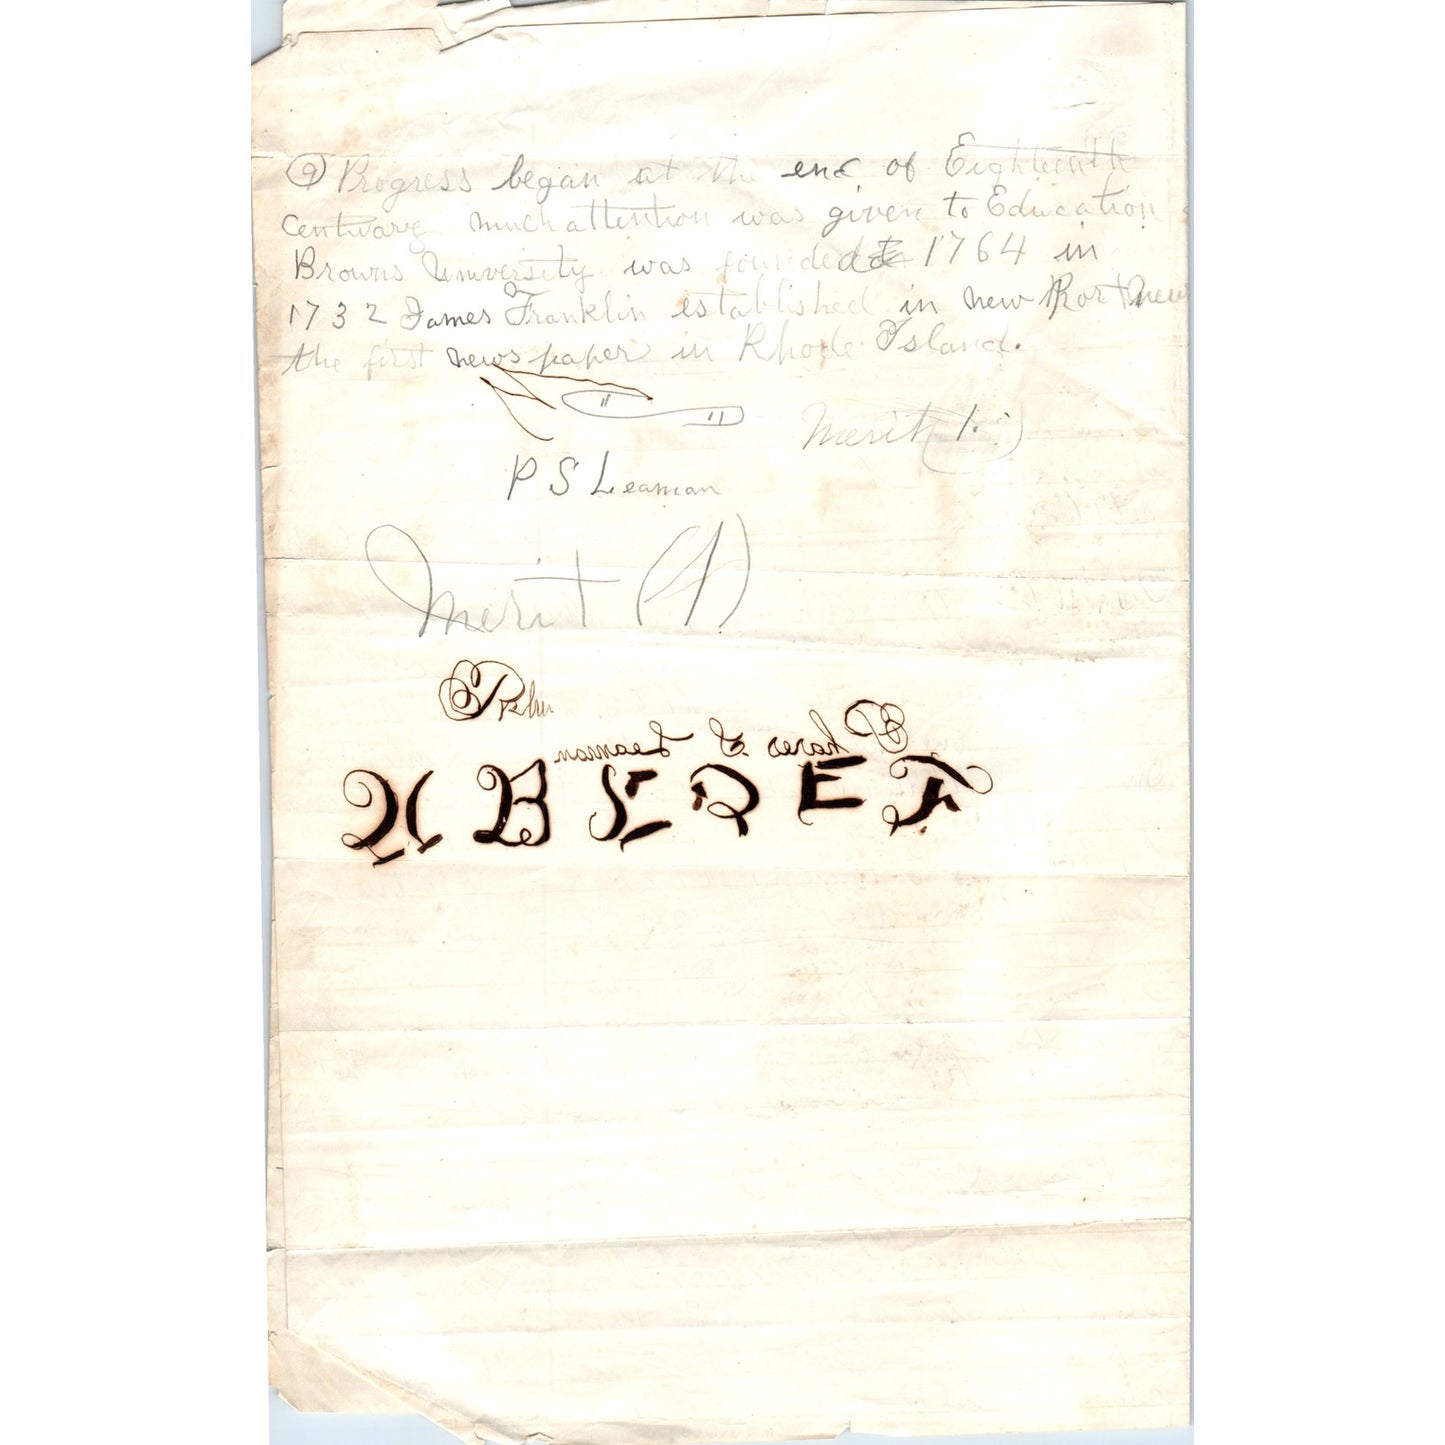 (9) Progress began at the end of Eighteenth
centuary much attention was given to Education
Browns University was founded 1764 in
1732 James Franklin established in new Port new
the first news paper in Rhode Island.
Merit (1.)
P S Leaman
Merit (1)
Phares S Leaman
A B C D E F